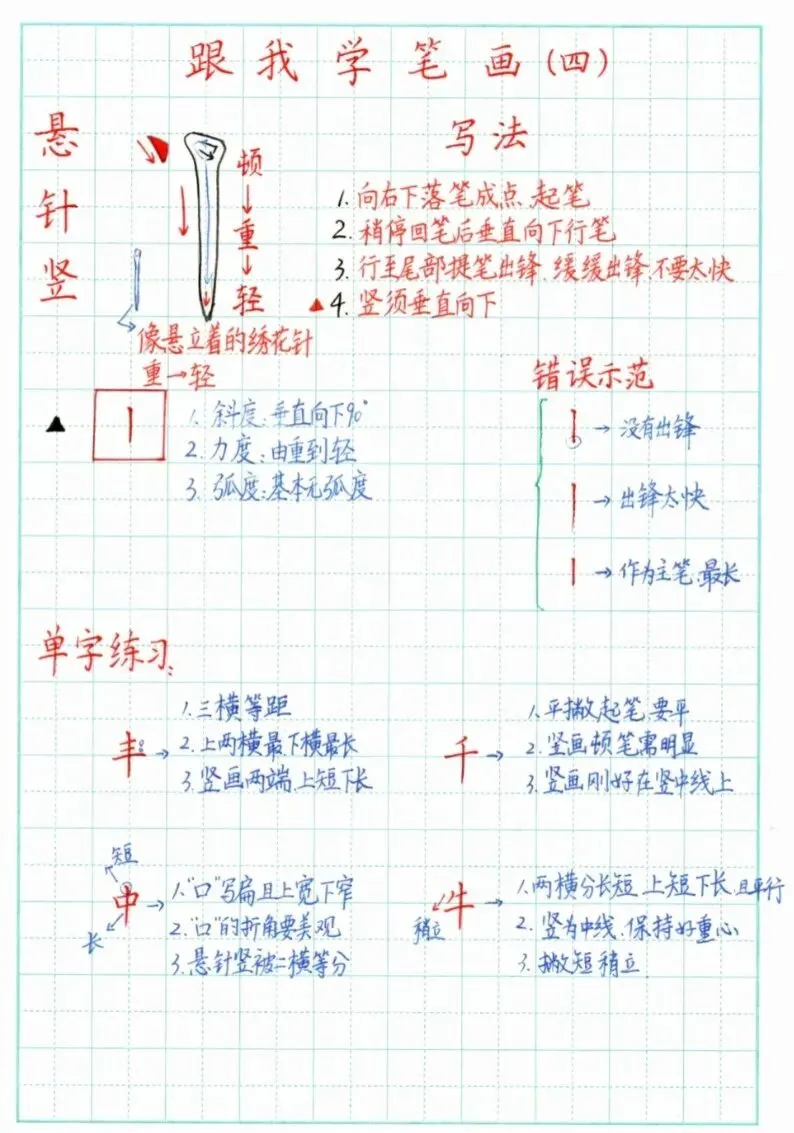 跟我学笔画(四)
悬针竖
顿
重
轻
像悬立着的绣花针
重→轻
写法
1. 向右下落笔成点、起笔
2. 稍停回笔后垂直向下行笔
3. 行至尾部提笔出锋、缓缓出锋、不要太快
▲4. 竖须垂直向下
▲
1. 斜度:垂直向下90°
2. 力度:由重到轻
3. 弧度:基本无弧度
错误示范
→没有出锋
→出锋太快
→作为主笔、最长
单字练习:
丰→
1. 三横等距
2. 上两横最、下横最长
3. 竖画两端、上短下长
千→
1. 平撇起笔、要平
2. 竖画顿笔需明显
3. 竖画刚好在竖中线上
短
中→
长
1. “口”写扁且上宽下窄
2. “口”的折角要美观
3. 悬针竖被二横等分
牛→
稍立
1. 两横分长短、上短下长、且平行
2. 竖为中线、保持好重心
3. 撇短稍立